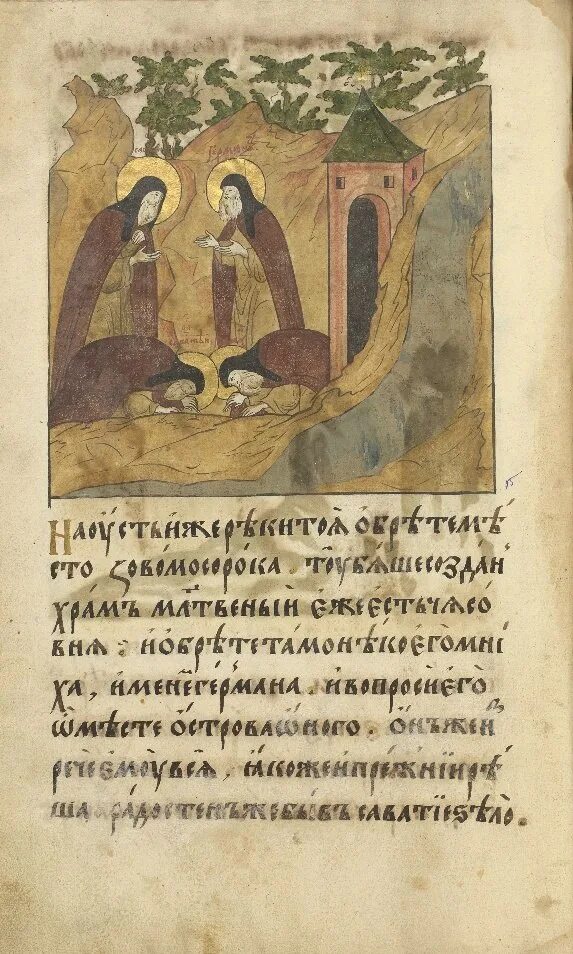 Герман
Наоустьижерѣкитоѧ обрѣтемѣ
сто зовомосорока. тоубѧшесозданъ
храмъ мл҃твеный ежеестьчѧсо
внѧ: иобрѣтетамонѣкоегомни
ха, именемгермана. ивопросиего
ѿмѣсте островаѡного. онъжеи
речеемоувсѧ, ꙗкожеипрежниирѣ
ша радостенъжебывъ саватїеѕѣло.